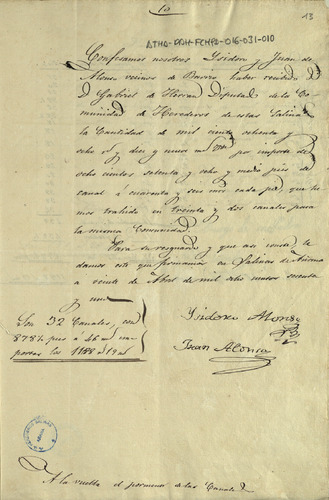 10
13
ATHA-DAH-FCHPD-016-031-010
Confesamos nosotros Isidoro y Juan de
Alonso vecinos de Barrio haber recibido de
D Gabriel de Herran Diputado de la Co-
munidad de Herederos de estas Salinas
la Cantidad de mil ciento ochenta y
ocho r.s y diez y nueve m por importe de
ocho cientos setenta y ocho y medio pies de
canal á cuarenta y seis mrs cada pie que he-
mos trahido en treinta y dos canales para
la misma Comunidad.
Para su resguardo y que asi conste le
damos este que firmamos en Salinas de Añana
a veinte de Abril de mil ocho cientos sesenta
y uno
Son 32 Canales, con
878½ pies a 46 m im-
portan los 1188 r 19 m
Isidoro Alonso
Juan Alonso
A la vuelta el pormenor de las Canales